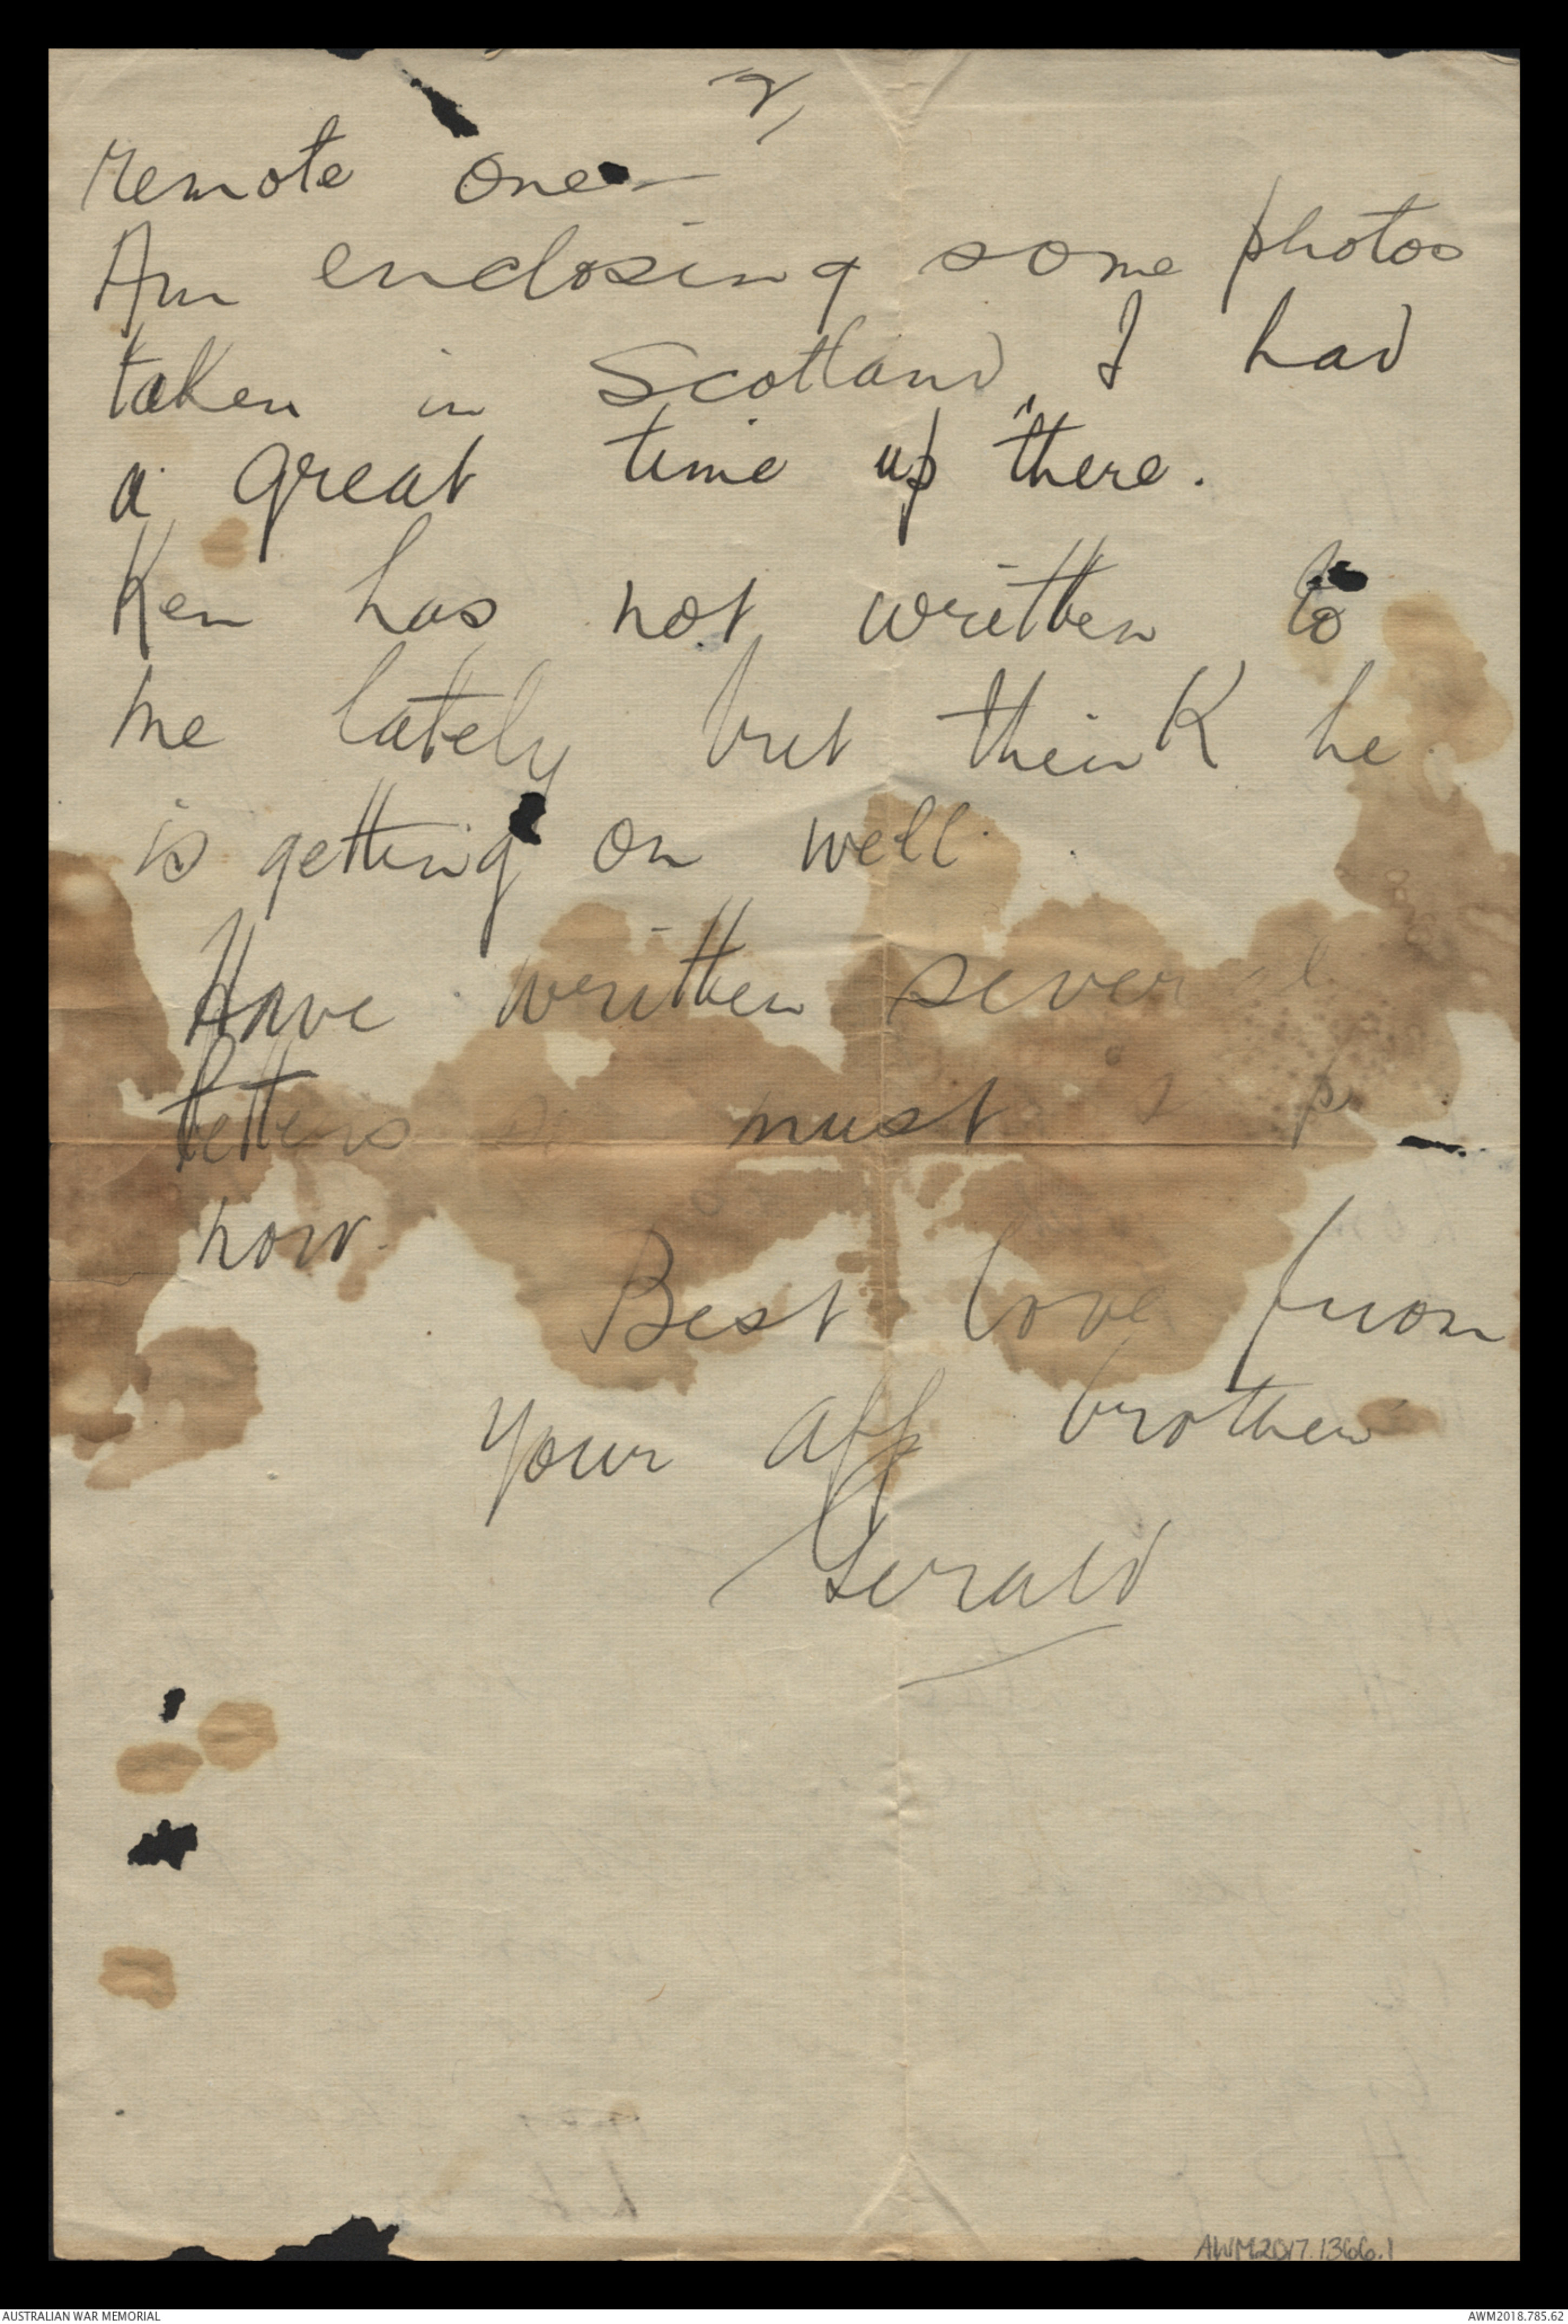 2,
remote one —
Am enclosing some photos
taken in Scotland, I had
a great time up "there.
Ken has not written to
me lately but think he
is getting on well.
Have written several
letters so must
now.
Best love from
your aff brother
Gerald
AWM2017.1366.1
AUSTRALIAN WAR MEMORIAL
AWM2018.785.52